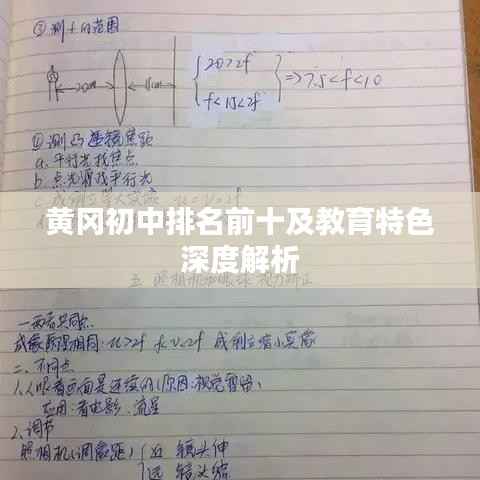 ③测f的范围
20cm 15cm { 20>2f
f<15<2f } => 7.5<f<10
④测凸透镜焦距
a. 平行光找焦点
b. 点光源找平行光
黄冈初中排名前十及教育特色
深度解析
一、两者共同点
成像原理相同: u>2f f<v<2f 成倒立缩小实像
二、不同点
1、人眼看画面是连续的(原因:视觉暂留)
应用:看电影、流星
2、调节
照相机(调像距) { 近 镜头伸
远 镜头缩